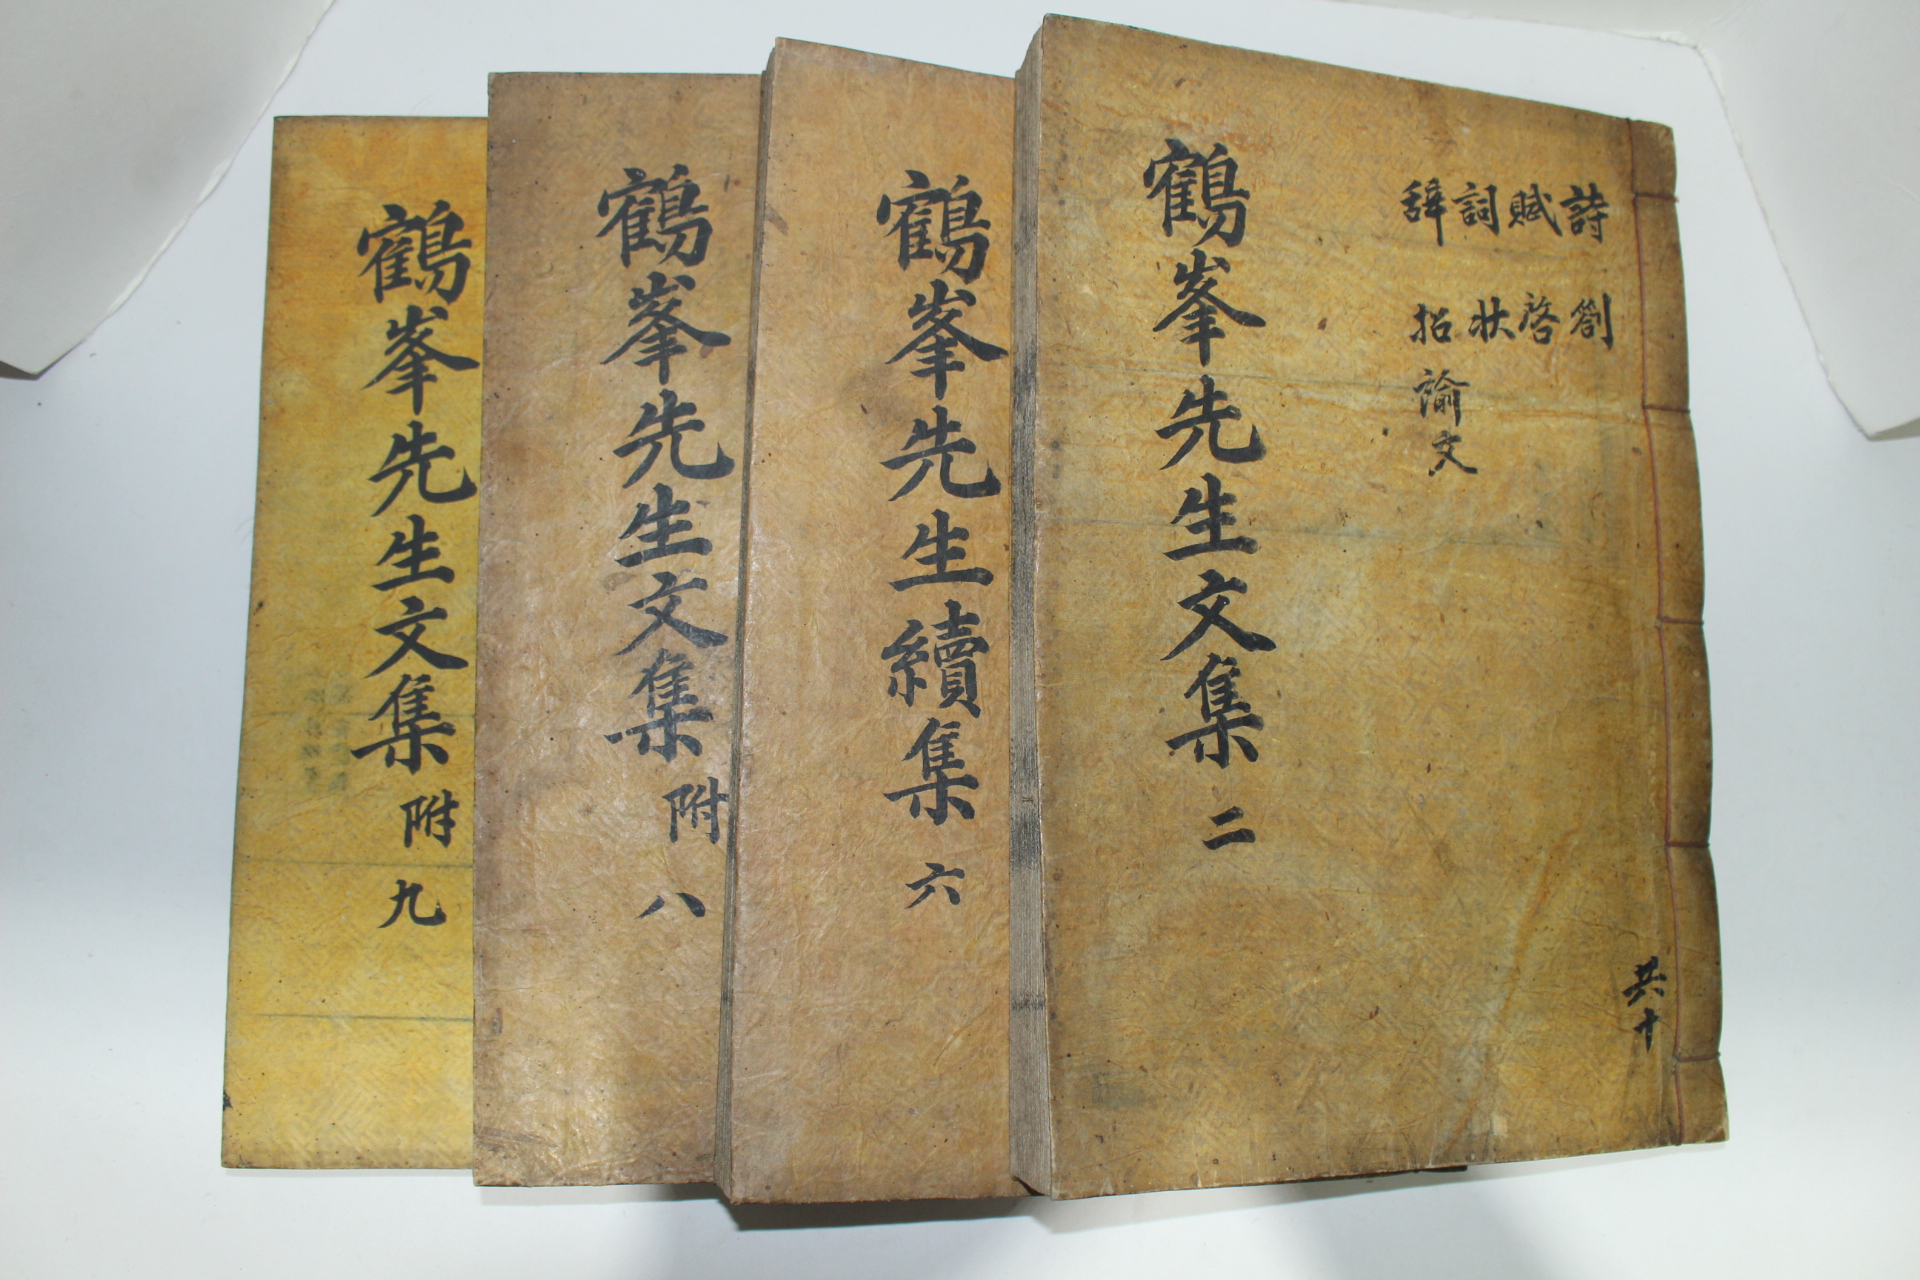 詩劄
賦啓
詞状
辞招諭文
共十
鶴峯先生文集 二
鶴峯先生續集 六
鶴峯先生文集 附 八
鶴峯先生文集 附 九